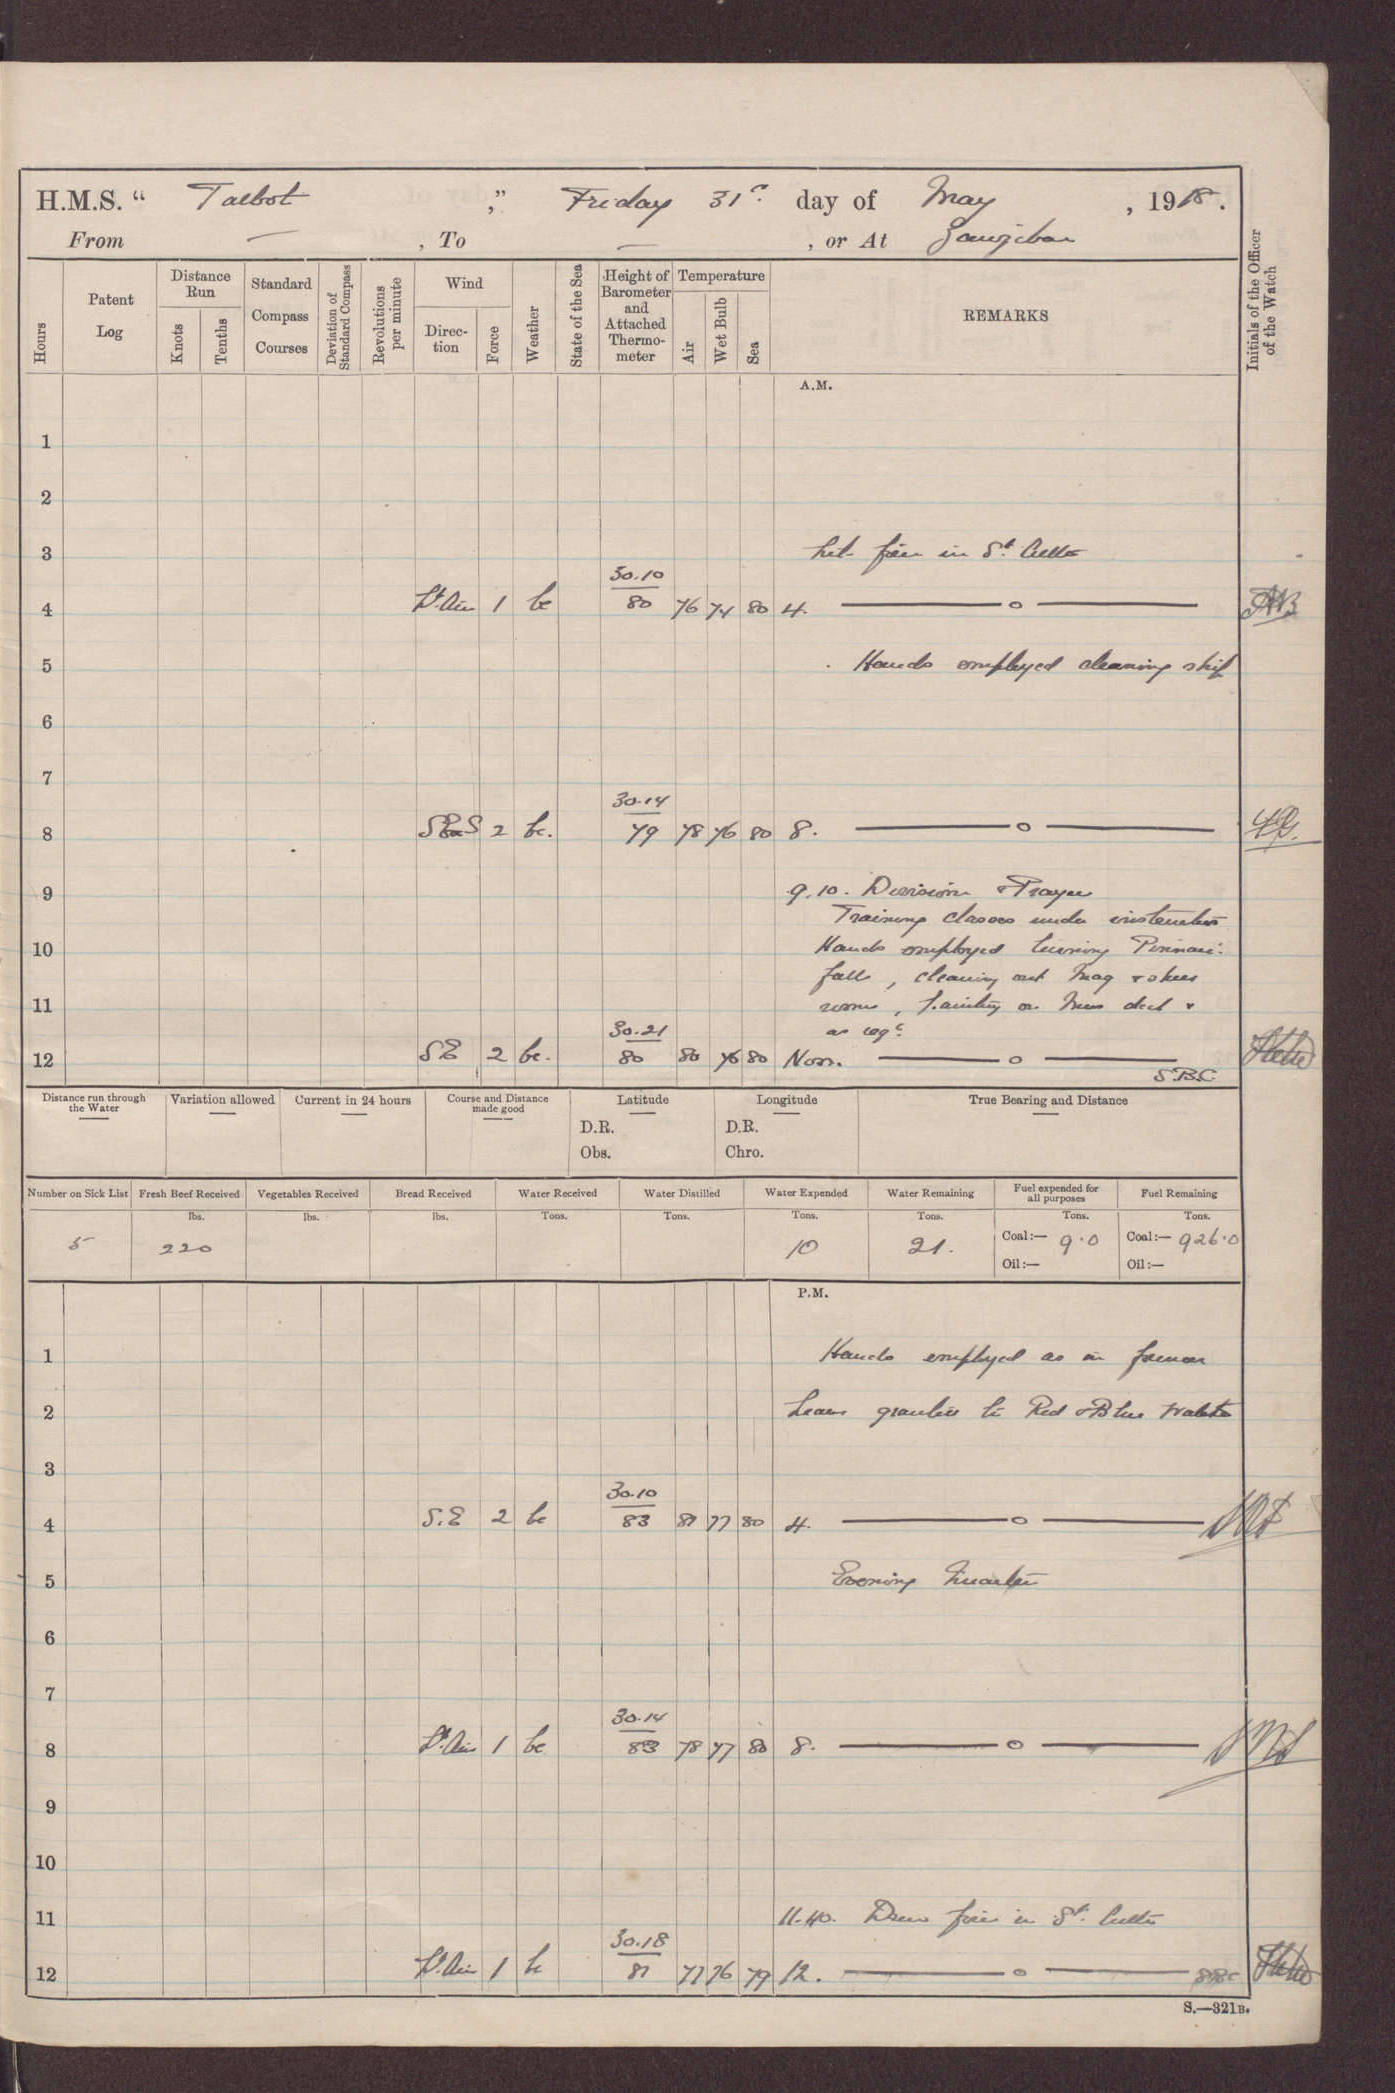 H.M.S. “ Talbot ,” Friday 31st day of May , 1918.
From — , To — , or At Zanzibar
Hours
Patent Log
Distance Run
Knots
Tenths
Standard Compass Courses
Deviation of Standard Compass
Revolutions per minute
Wind
Direc-tion
Force
Weather
State of the Sea
Height of Barometer and Attached Thermo-meter
Temperature
Air
Wet Bulb
Sea
REMARKS
Initials of the Officer of the Watch
A.M.
1
2
3 Lit fire in St. Cutter
30.10
4 Lt. Air 1 bc 80 76 74 80 4. —— o ——
5 Hands employed cleaning ship
6
7
30.14
8 2 bc. 79 78 76 80 8. —— o ——
9 9.10. Divisions & Prayers
Training classes under instruction
10 Hands employed turning Pinnace
falls, cleaning out Mag & shell
11 rooms, painting on Mess deck &
30.21 as reqd.
12 SE 2 bc. 80 80 76 80 Noon. —— o ——
S.B.C.
Distance run through the Water
Variation allowed
Current in 24 hours
Course and Distance made good
Latitude
D.R.
Obs.
Longitude
D.R.
Chro.
True Bearing and Distance
Number on Sick List Fresh Beef Received Vegetables Received Bread Received Water Received Water Distilled Water Expended Water Remaining Fuel expended for all purposes Fuel Remaining
lbs. lbs. lbs. Tons. Tons. Tons. Tons. Tons. Tons.
5 220 10 21. Coal:— 9.0 Coal:— 926.0
Oil:— Oil:—
P.M.
1 Hands employed as in forenoon
2 Leave granted to Red & Blue watches
3
30.10
4 S.E 2 bc 83 81 77 80 4. —— o ——
5 Evening Quarters
6
7
30.14
8 Lt. Air 1 bc 83 78 77 80 8. —— o ——
9
10
11 11.40. Drew fire in St. Cutter
30.18
12 Lt. Air 1 bc 81 77 76 79 12. —— o —— SBC
S.—321B.